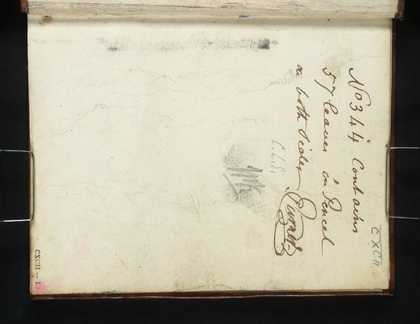 No 344 Contains
57 leaves in Pencil
on both sides
C.L.E.
CXCII
CXCII — 1